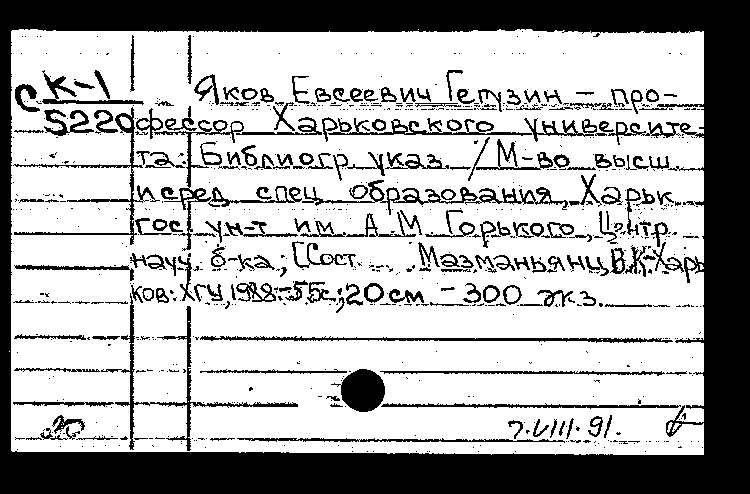 С К-1 Яков Евсеевич Гегузин – про-
5220 фессор Харьковского университе-
та: Библиогр. указ. / М-во высш.
и сред. спец. образования, Харьк.
гос. ун-т им. А.М. Горького, Центр.
науч. б-ка; [Сост. Мазманьянц В.К.-Харь
ков: ХГУ, 1988.-55с.; 20 см – 300 экз.
7.VIII.91.